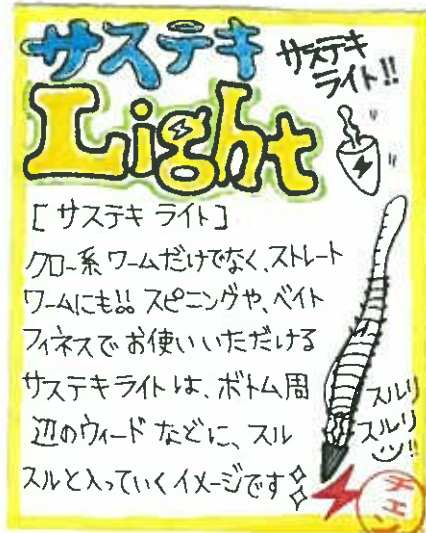 サステキ
Light
サステキ
ライト!!
[サステキ ライト]
クロー系ワームだけでなく、ストレート
ワームにも!! スピニングや、ベイト
フィネスでお使いいただける
サステキライトは、ボトム周
辺のウィードなどに、スル
スルと入っていくイメージです
スルリ
スルリ
!!
チェン